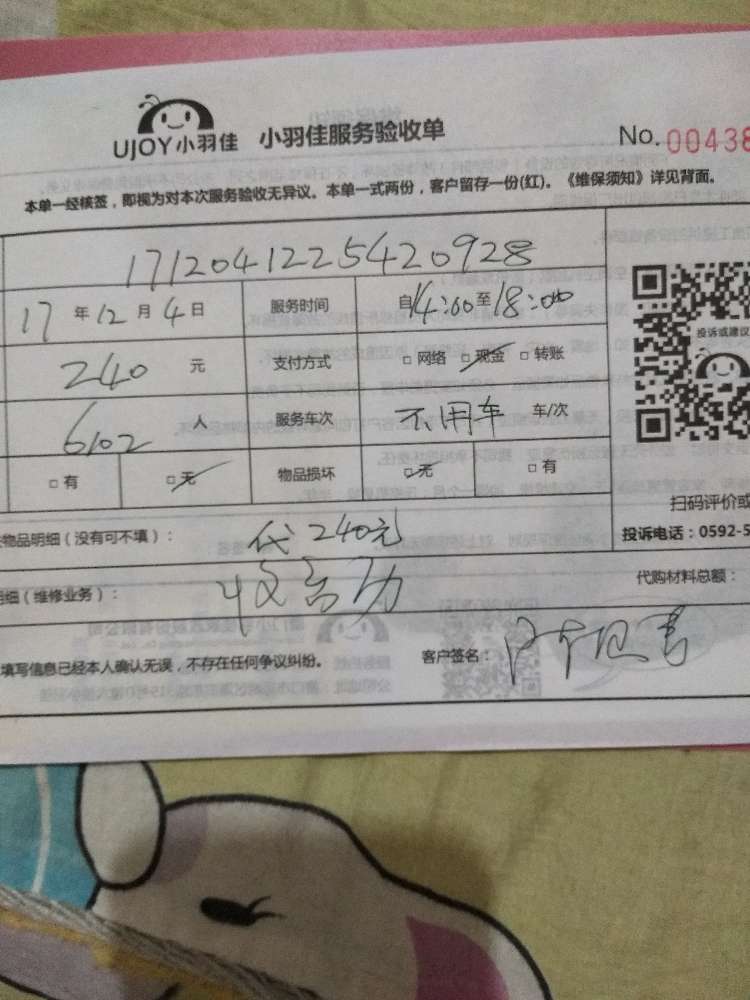 UJOY小羽佳 小羽佳服务验收单 No. 00438
本单一经核签，即视为对本次服务验收无异议。本单一式两份，客户留存一份(红)。《维保须知》详见背面。
1712041225420928
17年12月4日 服务时间 自14:00至18:00
240 元 支付方式 □网络 □现金 □转账
投诉或建议
6102 人 服务车次 不用车 车/次
□有 □无 物品损坏 □无 □有
扫码评价或
物品明细（没有可不填）： 240元 投诉电话：0592-5
明细（维修业务）： 代购材料总额：
填写信息已经本人确认无误，不存在任何争议纠纷。 客户签名：